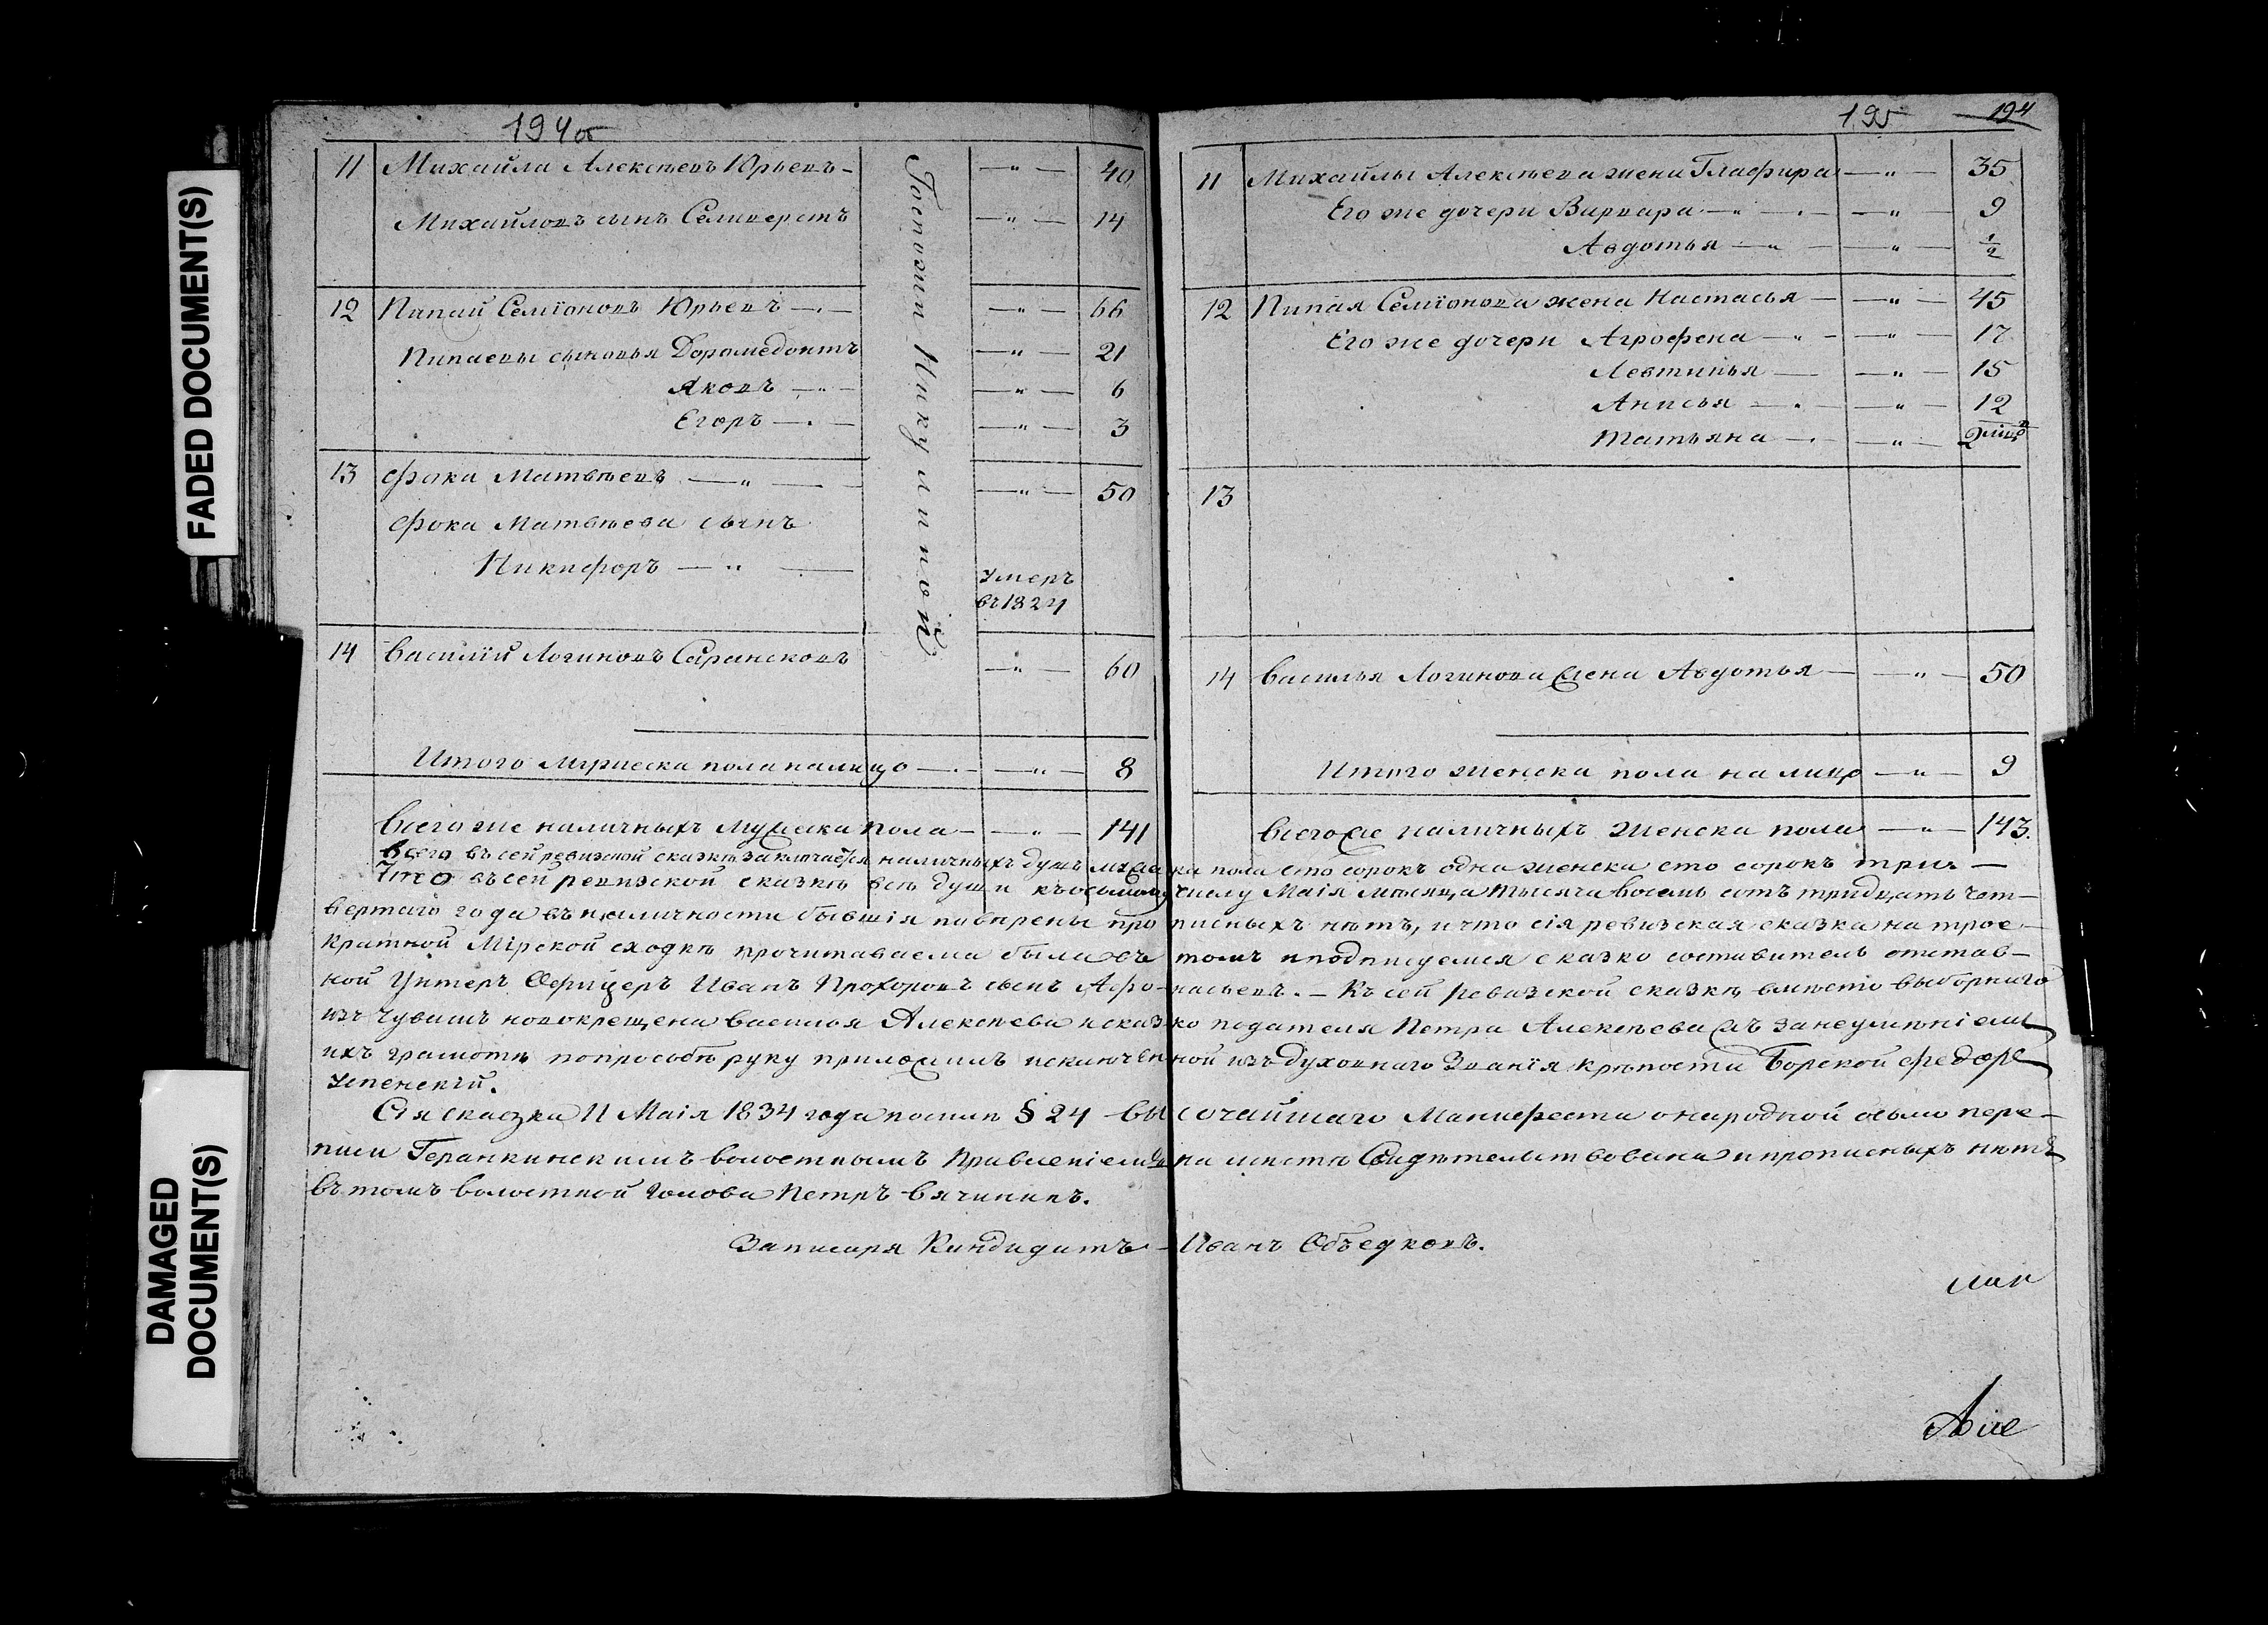 FADED DOCUMENT(S)
DAMAGED
DOCUMENT(S)
194об
11 Михайла Алексѣевъ Юрьевъ — 〃 — 40
Михайловъ сынъ Селиверстъ — 〃 — 14
12 Пипай Семіоновъ Юрьевъ — 〃 — 66
Пипаевы сыновья Доромедонтъ — 〃 — 21
Яковъ — 〃 — 6
Егоръ — 〃 — 3
13 Фока Матвѣевъ — 〃 — 50
Фока Матвѣева сынъ
Никифоръ — 〃 — умеръ
въ 1824
14 Василій Логиновъ Сарансковъ — 〃 — 60
Госпожи Никулиной
Итого мужеска пола налицо — 〃 — 8
Всего же наличныхъ мужеска пола — 〃 — 141
195 194
11 Михайлы Алексѣева жена Глафира — 〃 — 35
Его же дочери Варвара — 〃 — 9
Авдотья — 〃 — 1/2
12 Пипая Семіонова жена Настасья — 〃 — 45
Его же дочери Агрофена — 〃 — 17
Левтинья — 〃 — 15
Анисья — 〃 — 12
Татьяна — 〃 — 2
13
14 Василья Логинова жена Авдотья — 〃 — 50
Итого женска пола налицо — 〃 — 9
Всего же наличныхъ женска пола — 〃 — 143.
Всего въ сей ревизской сказкѣ заключается наличныхъ душъ мужеска пола сто сорокъ одна женска сто сорокъ три. —
Что въ сей ревизской сказкѣ всѣ души къ осьмому числу Маія мѣсяца тысяча восемь сотъ тридцать чет-
вертаго года въ наличности бывшія повѣрены прописныхъ нѣтъ, и что сія ревизская сказка на трое-
кратной Мірской сходкѣ прочитаваема была въ томъ и подписуемся сказко составитель отстав-
ной Унтеръ Офицеръ Иванъ Прохоровъ сынъ Афонасьевъ. — Къ сей ревизской сказкѣ вмѣсто выборнаго
изъ чувашъ новокрещена Василья Алексѣева и сказко подателя Петра Алексѣева жъ за неумѣніемъ
ихъ грамотѣ по прозьбѣ руку приложилъ исключенной изъ духовнаго званія крѣпости Борской Федоръ
Успенскій.
Сія сказка 11 Маія 1834 года по силѣ § 24 Высочайшаго Манифеста о народной осьмой пере-
писи Геранкинскимъ волостнымъ Правленіемъ на мѣстѣ Свидѣтельствована и прописныхъ нѣтъ
въ томъ волостной голова Петръ Вячинъ.
За писаря Кандидатъ — Иванъ Объедковъ.